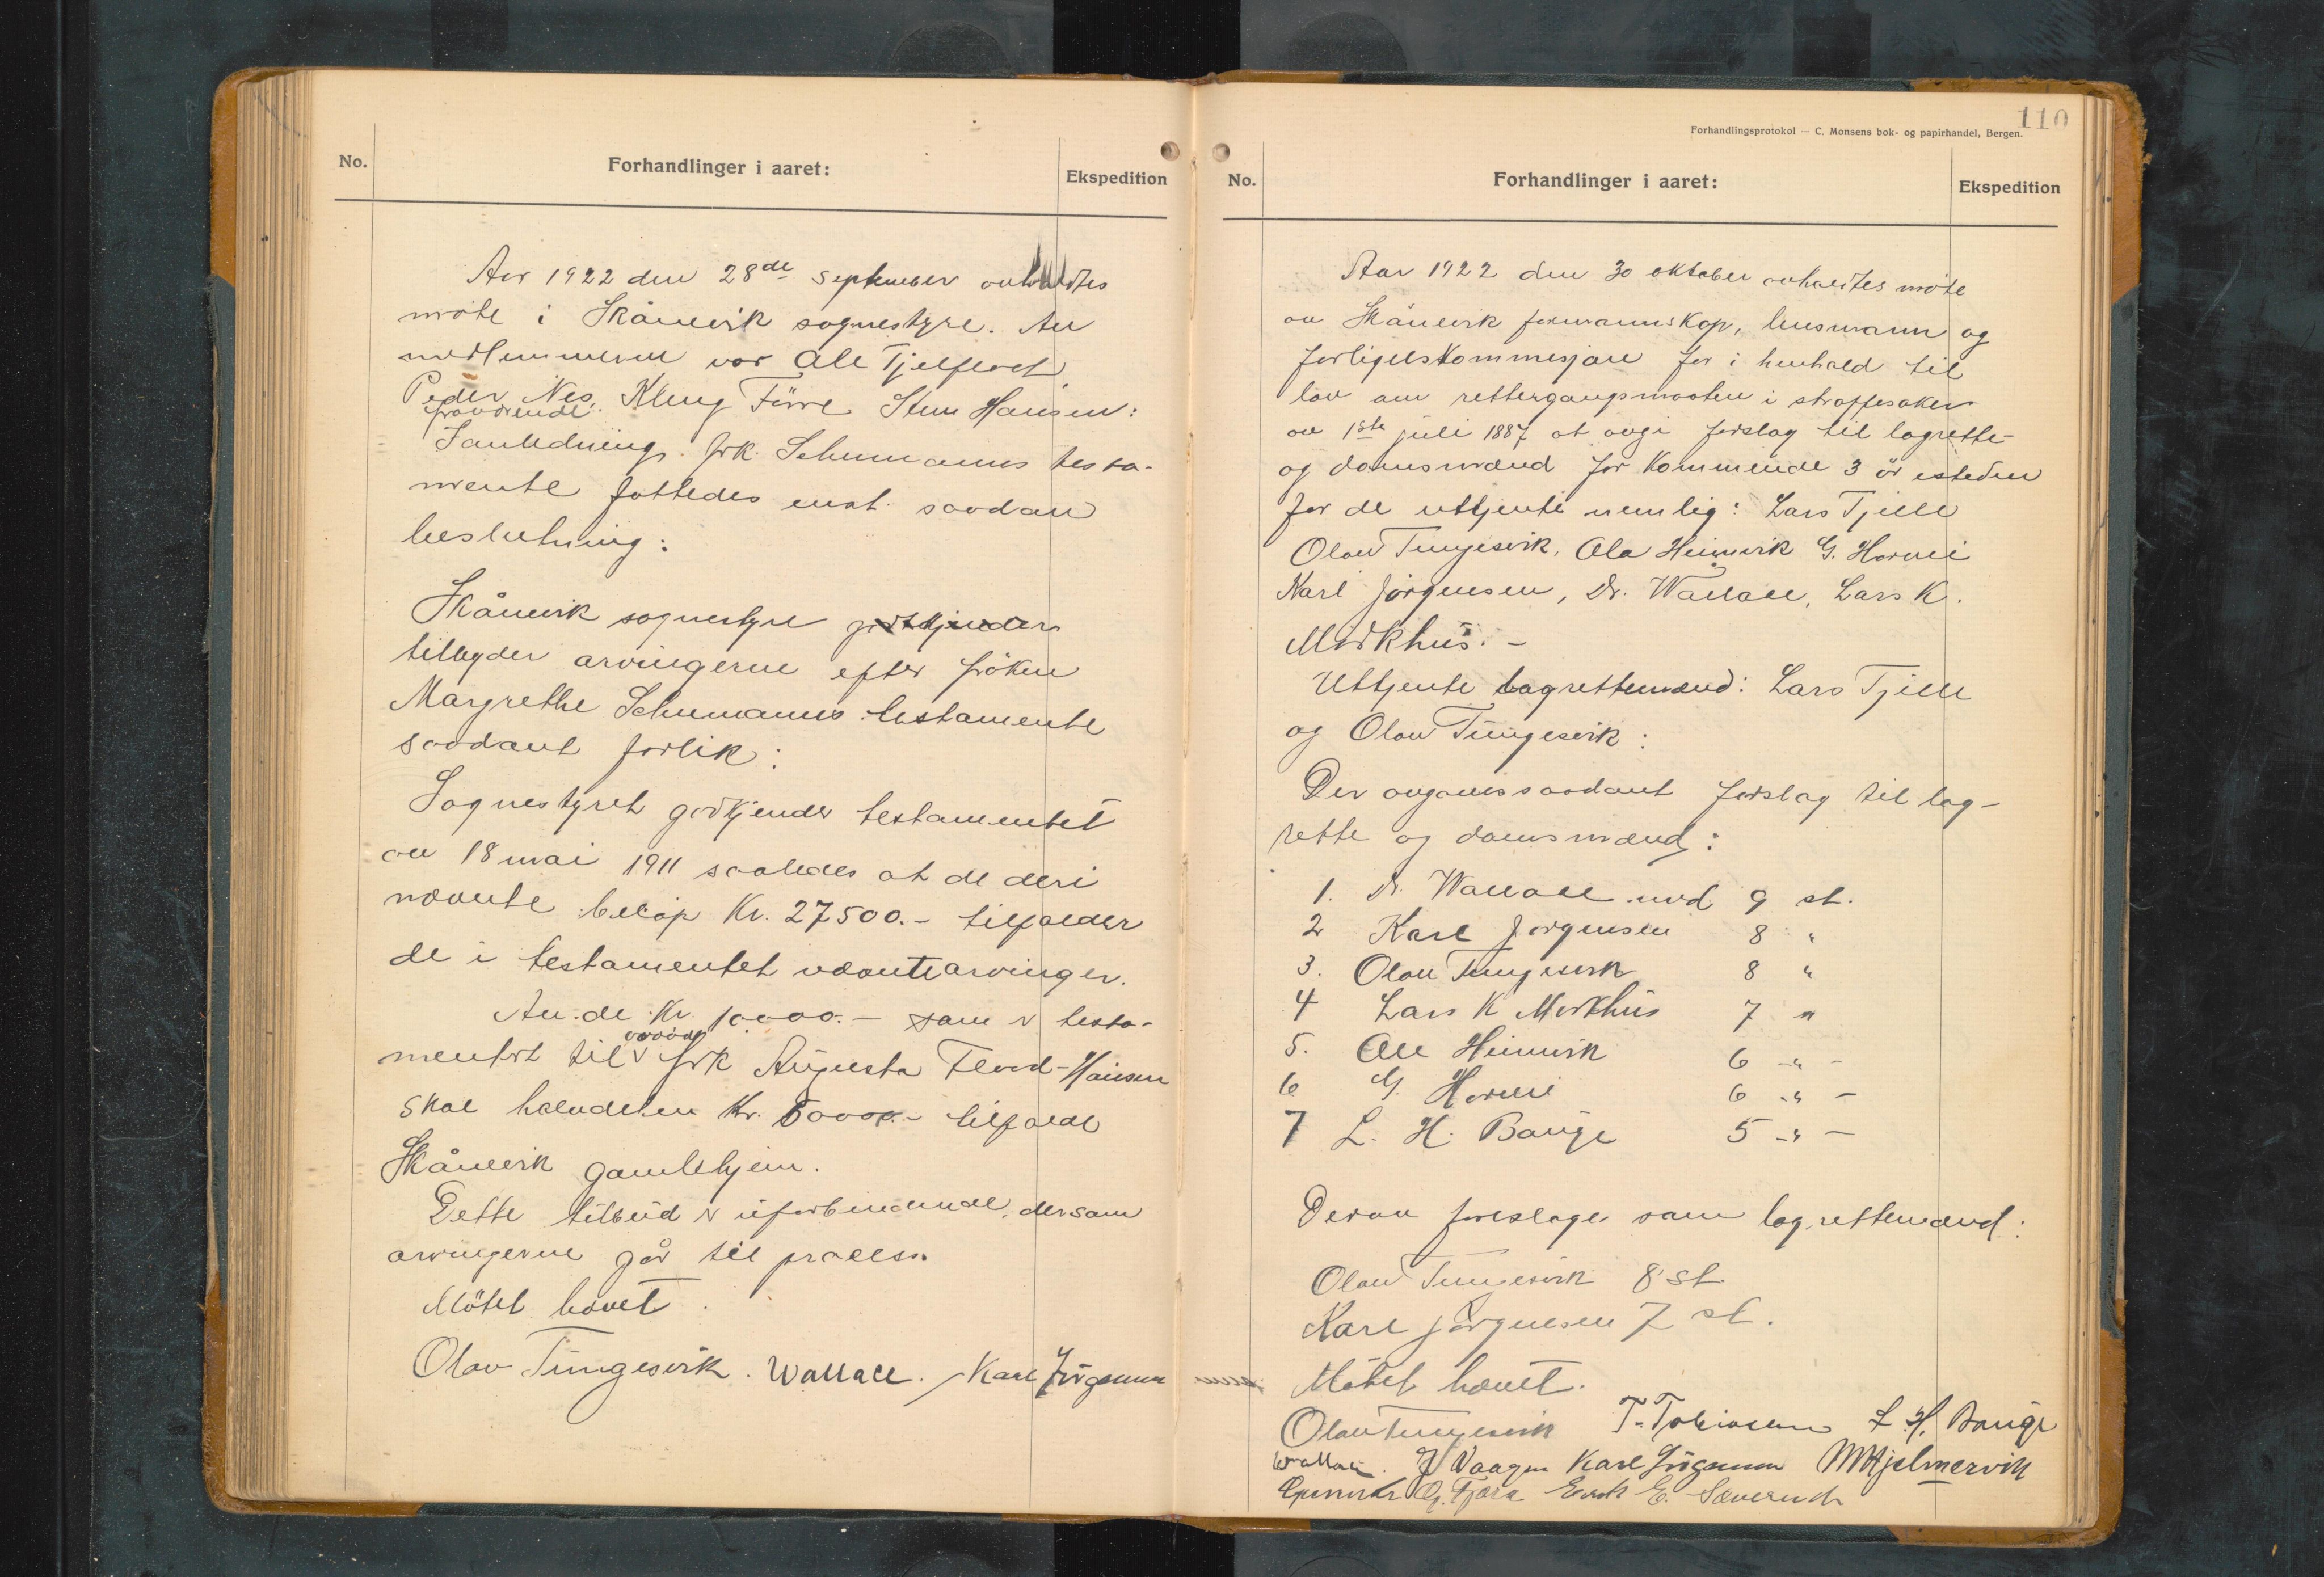 No.
Forhandlinger i aaret:
Ekspedition
Aar 1922 den 28de september avholdtes
møte i Skånevik sognestyre. Av
medlemmerne var Ole Tjelflaat,
Peder Nes, Kleng Førre Sten Hansen:
fraværende.
I anledning frk. Schumanns testa-
mente fattedes enst. saadan
beslutning:
Skånevik sognestyre godkjender
tilbyder arvingerne efter frøken
Margrethe Schumanns testamente
saadant forlik:
Sognestyret godkjender testamentet
av 18 mai 1911 saaledes at de deri
nævnte beløp Kr. 27500.- tilfalder
de i testamentet nævnte arvinger.
Av de Kr. 10000.- som er testa-
mentert til frk Augusta Flood-Hansen
skal halvdelen Kr. 5000.- tilfalde
Skånevik gamlehjem.
Dette tilbud er uforbindende, dersom
arvingerne går til proces.
Møtet hævet.
Olav Tungesvik. Wallace. Karl Jørgensen
110
Forhandlingsprotokol — C. Monsens bok- og papirhandel, Bergen.
No.
Forhandlinger i aaret:
Ekspedition
Aar 1922 den 30 oktober avholdtes møte
av Skånevik formannskap, lensmann og
forligelskommisjare for i henhold til
lov om rettergangsmaaten i straffesaker
av 1ste juli 1887 at avgi forslag til lagrette-
og domsmænd for kommende 3 år isteden
for de uttjente nemlig: Lars Tjelle
Olav Tungesvik, Ola Heimvik G. Havnei
Karl Jørgensen, Dr. Wallace, Lars K.
Markhus. -
Uttjente lagrettemænd: Lars Tjelle
og Olav Tungesvik:
Der avgaves saadant forslag til lag-
rette og domsmænd:
1. Dr. Wallace med 9 st.
2 Karl Jørgensen 8 "
3. Olav Tungesvik 8 "
4 Lars K Markhus 7 "
5. Ole Heimvik 6 -"-
6 G. Havnei 6 -"-
7 L. H. Bauge 5 -"-
Derav foreslages som lagrettemænd:
Olav Tungesvik 8 st.
Karl Jørgensen 7 st.
Møtet hævet.
Olav Tungesvik T. Tobiasen L. H. Bauge
Wallace. J Vaagen Karl Jørgensen M Hjelmervik
Gunnar G. Fjæra E. Sævereide